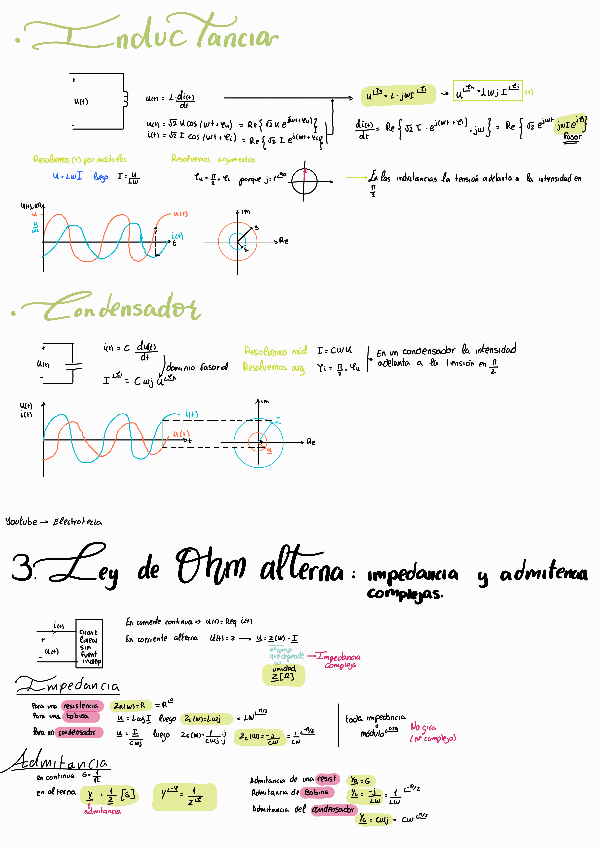 Inductancia
+
u(t)
-
u(t) = L · di(t)/dt
U^∠φu = L · jωI^∠φi → U^∠φu = Lωj I^∠φi (1)
u(t) = √2 U cos(ωt+φu) = Re{√2 U e^j(ωt+φu)}
i(t) = √2 I cos(ωt+φi) = Re{√2 I e^j(ωt+φi)}
di(t)/dt = Re{√2 I · e^j(ωt+φi) · jω} = Re{√2 e^jωt jωI e^jφi}
Fasor
Resolvemos (1) por módulos
U = LωI luego I = U/Lω
Resolvemos argumentos
φu = π/2 + φi porque j = 1^∠90
→ En las inductancias la tensión adelanta a la intensidad en π/2
u(t)
i(t)
t
Im
Re
Condensador
+
u(t)
-
i(t) = C du(t)/dt
I^∠φi = Cωj U^∠φu
dominio fasorial
Resolvemos mod I = CωU
Resolvemos arg φi = π/2 + φu
En un condensador la intensidad
adelanta a la tensión en π/2
u(t)
i(t)
i(t)
u(t)
t
Im
I
u
Re
Youtube → Electrotecia
3. Ley de Ohm alterna: impedancia y admitencia
complejas.
i(t)
+
u(t)
-
cuart
lineal
sin
fuent
indep
En corriente continua => u(t) = Req i(t)
En corriente alterna u(t) = ? → U = Z(ω) · I
nº comp
que depende
→ Impedancia
compleja
unidad
Z [Ω]
Impedancia
Para una resistencia ZR(ω) = R = R^∠0
Para una bobina U = LωjI luego ZL(ω) = Lωj = Lω^∠π/2
Para un condensador U = I/Cωj luego Zc(ω) = 1/Cωj · j Zc(ω) = -j/Cω = 1/Cω^∠-π/2
toda impedancia
módulo
No gira
(nº complejo)
Admitancia
en continua G = 1/R
en alterna Y = 1/Z [S]
admitancia
Y^∠-φ = 1/Z^∠φ
Admitancia de una resist YR = G
Admitancia de bobina YL = -j/Lω = 1/Lω^∠-π/2
Admitancia del condensador
Yc = Cωj = Cω^∠π/2